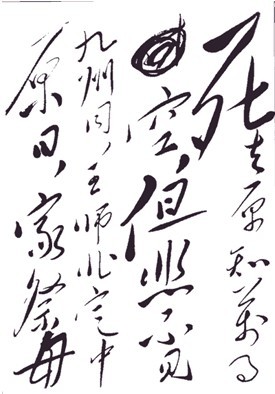 死去原知萬事
空,但悲不見
九州同,王師北定中
原日,家祭毋